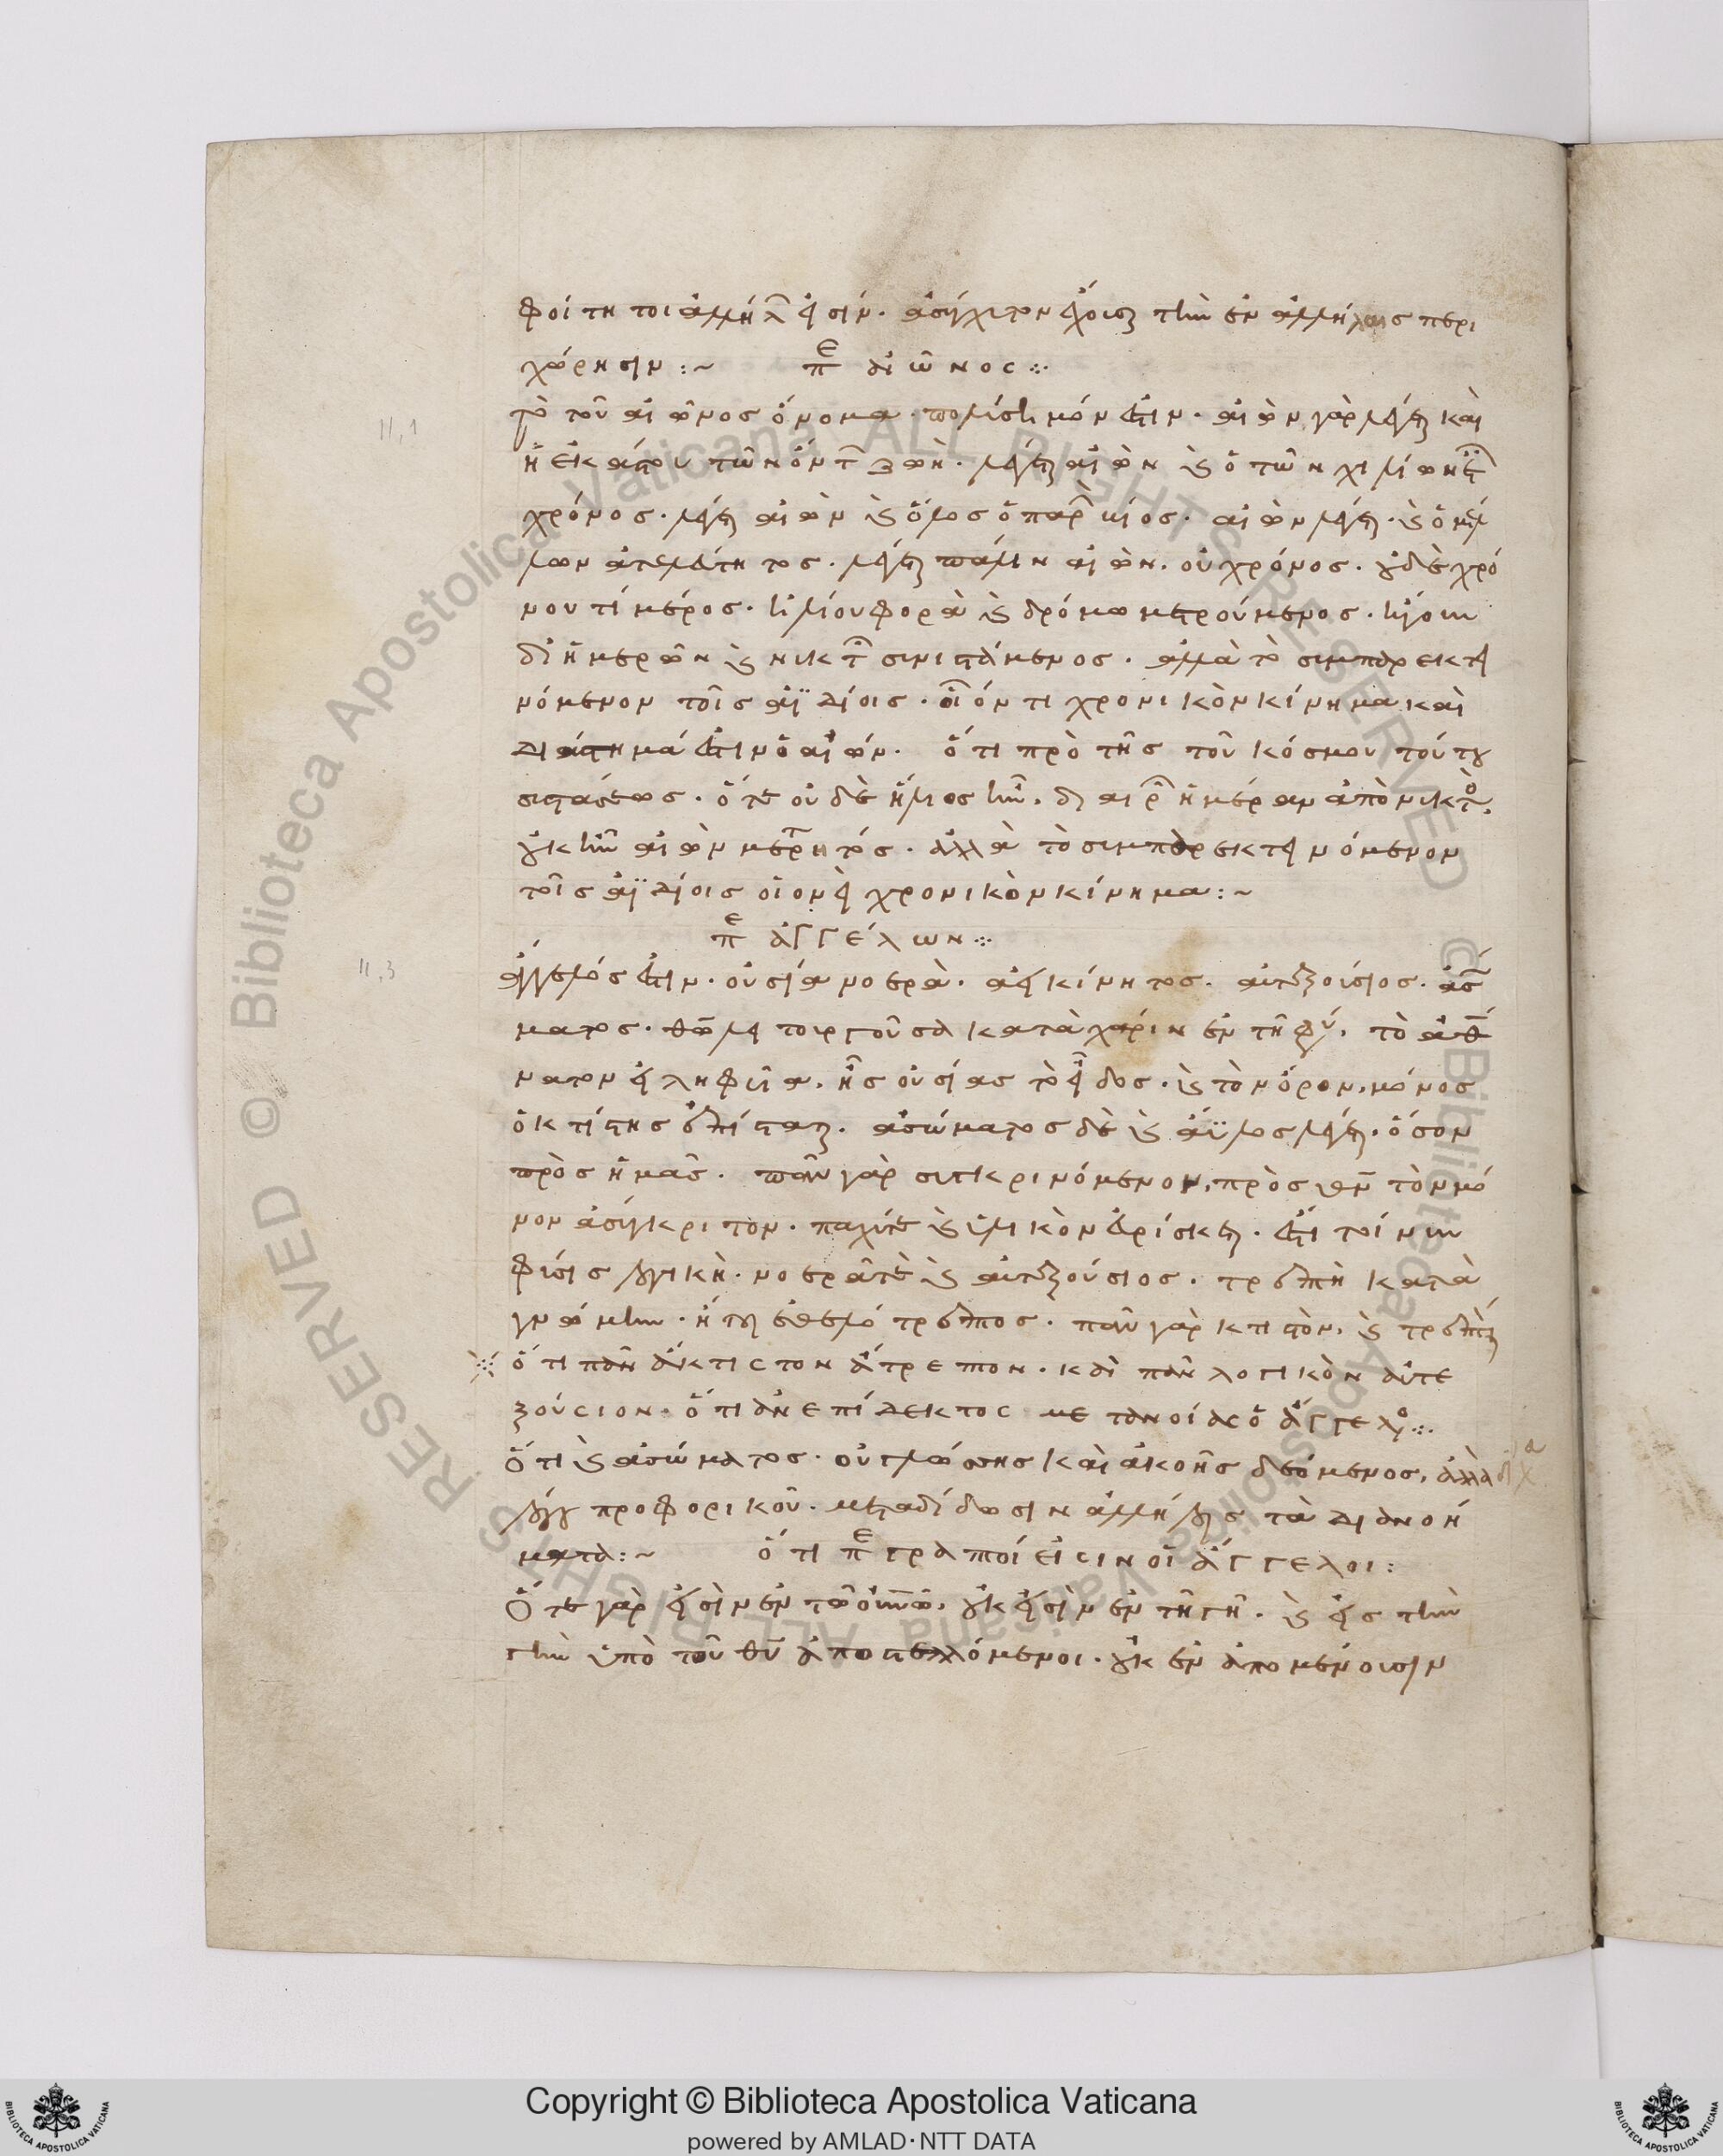 φοίτητοι ἀλλήλ εἰσίν. ἀσύγχυτον ἔχουσι τὴν ἐν ἀλλήλαις περι
χώρησιν :~ πε αἰῶνος ⁘
τὸ τοῦ αἰῶνος ὄνομα. πολύσημόν ἐστιν. αἰὼν γὰρ λέγεται καὶ
ἡ ἑκάστου τῶν ὄντ ζωὴ. λέγεται αἰὼν καὶ ὁ τῶν χιλίων ἐτ
χρόνος. λέγεται αἰὼν καὶ ὅλος ὁ παρ βίος. αἰὼν λέγεται. καὶ ὁ μέλ
λων ἀτελεύτητος. λέγεται πάλιν αἰὼν. οὐ χρόνος. οὐδὲ χρό
νου τί μέρος. ἡλίου φορᾶ καὶ δρόμω μετρούμενος. ἤγουν
δι ἡμερῶν καὶ νυκτ συνιστάμενος. ἀλλὰ τὸ συμπαρεκτει
νόμενον τοῖς ἀϊδίοις. οἷόν τι χρονικὸν κίνημα καὶ
διάστημά ἐστιν ὁ αἰών. ὅτι πρὸ τῆς τοῦ κόσμου τούτου
συστάσεως. ὅτε οὐδὲ ἥλιος ἦν. διαιρ ἡμέραν ἀπὸ νυκτὸ.
οὐκ ἦν αἰὼν μετρητός. ἀλλὰ τὸ συμπαρεκτεινόμενον
τοῖς ἀϊδίοις οἷον εἰ χρονικὸν κίνημα :~
πε ἀγγέλων ⁘
ἄγγελός ἐστιν. οὐσία νοερὰ. ἀεικίνητος. αὐτεξούσιος. ἀσ
ματος. θῶ λειτουργοῦσα κατὰ χάριν ἐν τῆ φύ. τὸ ἀθ
νατον εἰληφυῖα. ἧς οὐσίας τὸ εἶδος. καὶ τὸν ὅρον, μόνος
ὁ κτίστης ἐπίσταται. ἀσώματος δὲ καὶ ἄϋλος λέγεται. ὅσον
πρὸς ἡμᾶς. πᾶν γὰρ συγκρινόμενον, πρὸς θν τὸν μό
νον ἀσύγκριτον. παχύτε καὶ ὑλικὸν εὑρίσκεται. ἔστι τοίνυν
φύσις λογικὴ. νοεράτε καὶ αὐτεξούσιος. τρεπτὴ κατὰ
γνώμην. ἤτοι ἐθελότρεπτος. πᾶν γὰρ κτιστὸν. καὶ τρεπτὸ
ὅτι πᾶν ἄκτιστον ἄτρεπτον. καὶ πᾶν λογικὸν αὐτε
ξούσιον. ὅτι ἀνεπίδεκτος μετανοίας ὁ ἄγγελο ⁘
Ὅτι καὶ ἀσώματος. οὐ γλώσσης καὶ ἀκοῆς δεόμενος, ἀλλὰ δίχα
λόγου προφορικοῦ. μεταδίδωσιν ἀλλήλοις τὰ διανοή
ματα :~ ὅτι πεγραπτοί εἰσιν οἱ ἄγγελοι :
Ὅτε γάρ εἰσὶν ἐν τῶ οὐνῶ. οὐκ εἰσὶν ἐν τῆ γῆ. καὶ εἰς τὴν
γῆν ὑπὸ τοῦ θυ ἀποστελλόμενοι. οὐκ ἐναπομένουσιν
II, 1
II, 3
Copyright © Biblioteca Apostolica Vaticana
powered by AMLAD·NTT DATA